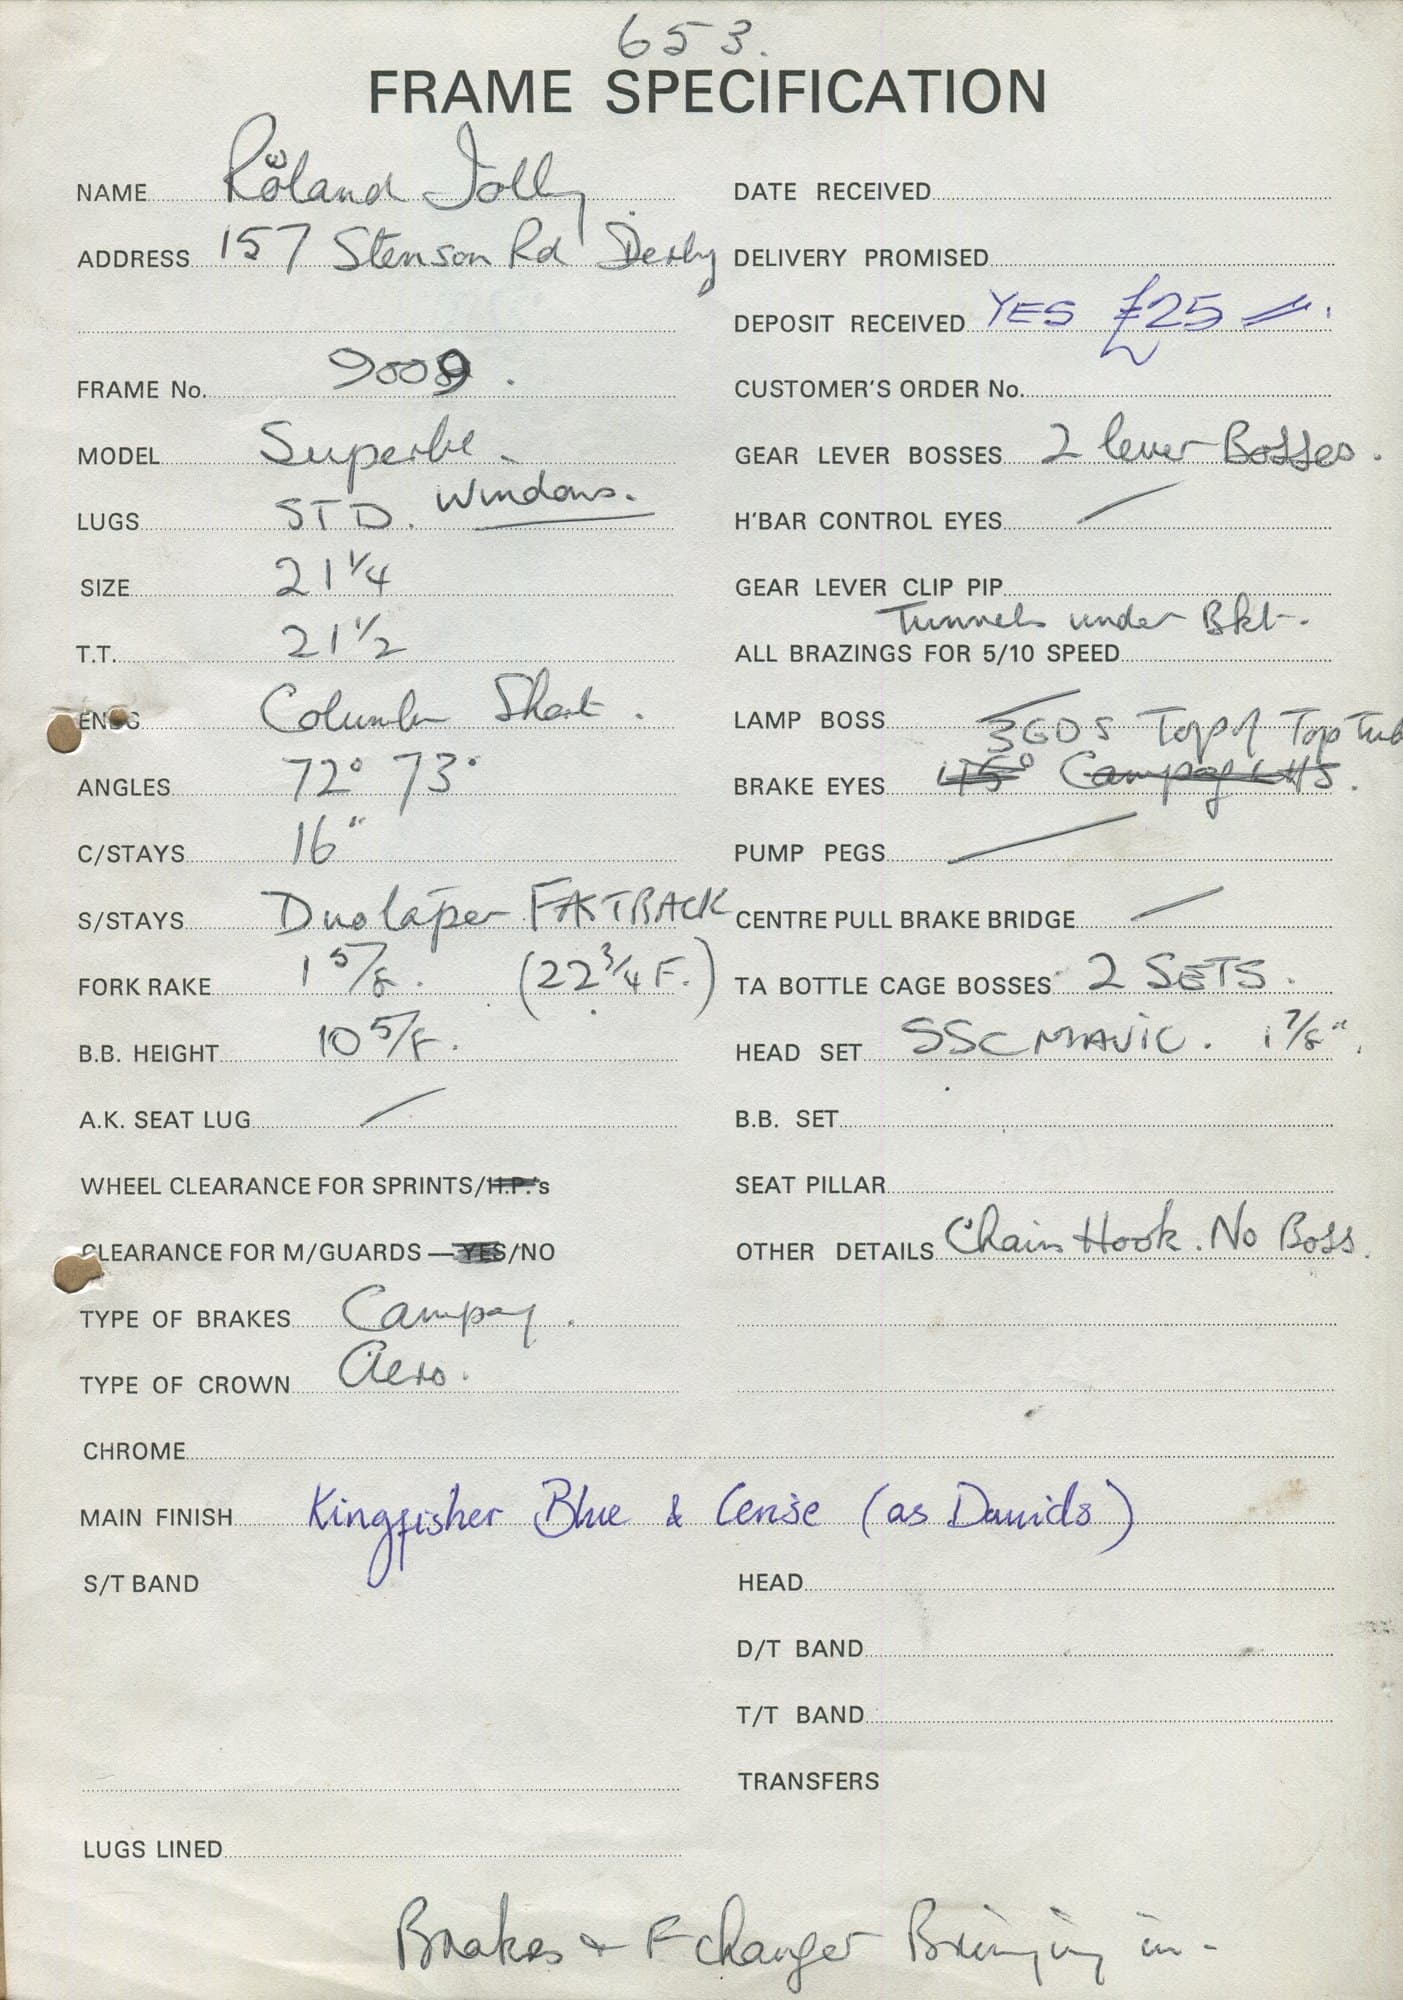 653.
FRAME SPECIFICATION
NAME Roland Jolly
ADDRESS 157 Stenson Rd Derby
FRAME No. 9009.
MODEL Superbe
LUGS STD. Windows.
SIZE 21 1/4
T.T. 21 1/2
ENDS Columbus Short.
ANGLES 72° 73°
C/STAYS 16"
S/STAYS Duotaper FASTBACK
FORK RAKE 1 5/8. (22 3/4 F.)
B.B. HEIGHT 10 5/8.
A.K. SEAT LUG /
WHEEL CLEARANCE FOR SPRINTS/H.P.'s
CLEARANCE FOR M/GUARDS — YES/NO
TYPE OF BRAKES Campag.
TYPE OF CROWN Aero.
CHROME
MAIN FINISH Kingfisher Blue & Cerise (as Davids)
S/T BAND
LUGS LINED
DATE RECEIVED
DELIVERY PROMISED
DEPOSIT RECEIVED YES £25
CUSTOMER'S ORDER No.
GEAR LEVER BOSSES 2 lever Bosses.
H'BAR CONTROL EYES /
GEAR LEVER CLIP PIP
Tunnels under Bkt.
ALL BRAZINGS FOR 5/10 SPEED
LAMP BOSS /
3 GDS Top of Top Tub
BRAKE EYES 45° Campag
PUMP PEGS /
CENTRE PULL BRAKE BRIDGE /
TA BOTTLE CAGE BOSSES 2 SETS.
HEAD SET SSC MAVIC. 1 7/8".
B.B. SET
SEAT PILLAR
OTHER DETAILS Chain Hook. No Boss.
HEAD
D/T BAND
T/T BAND
TRANSFERS
Brakes + F changer Bringing in.